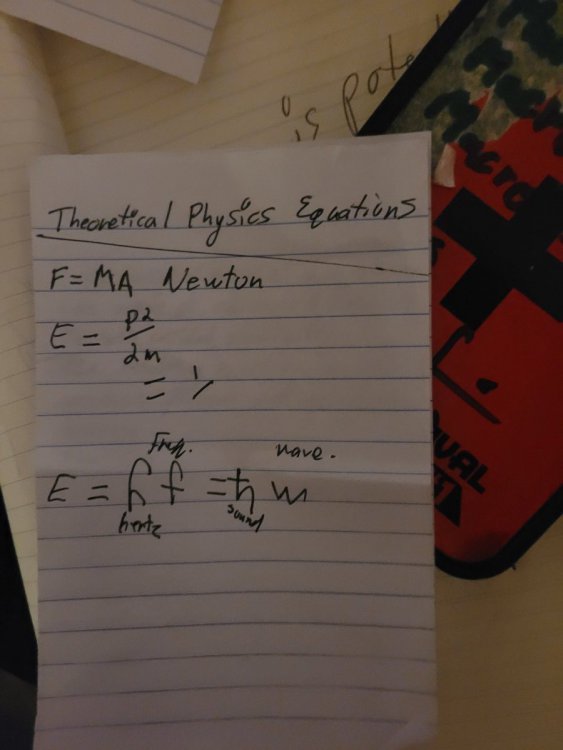 is pote
Theoretical Physics Equations
F = MA Newton
E = p2/2m
=
Freq. wave.
E = h f = ħ w
hertz sound